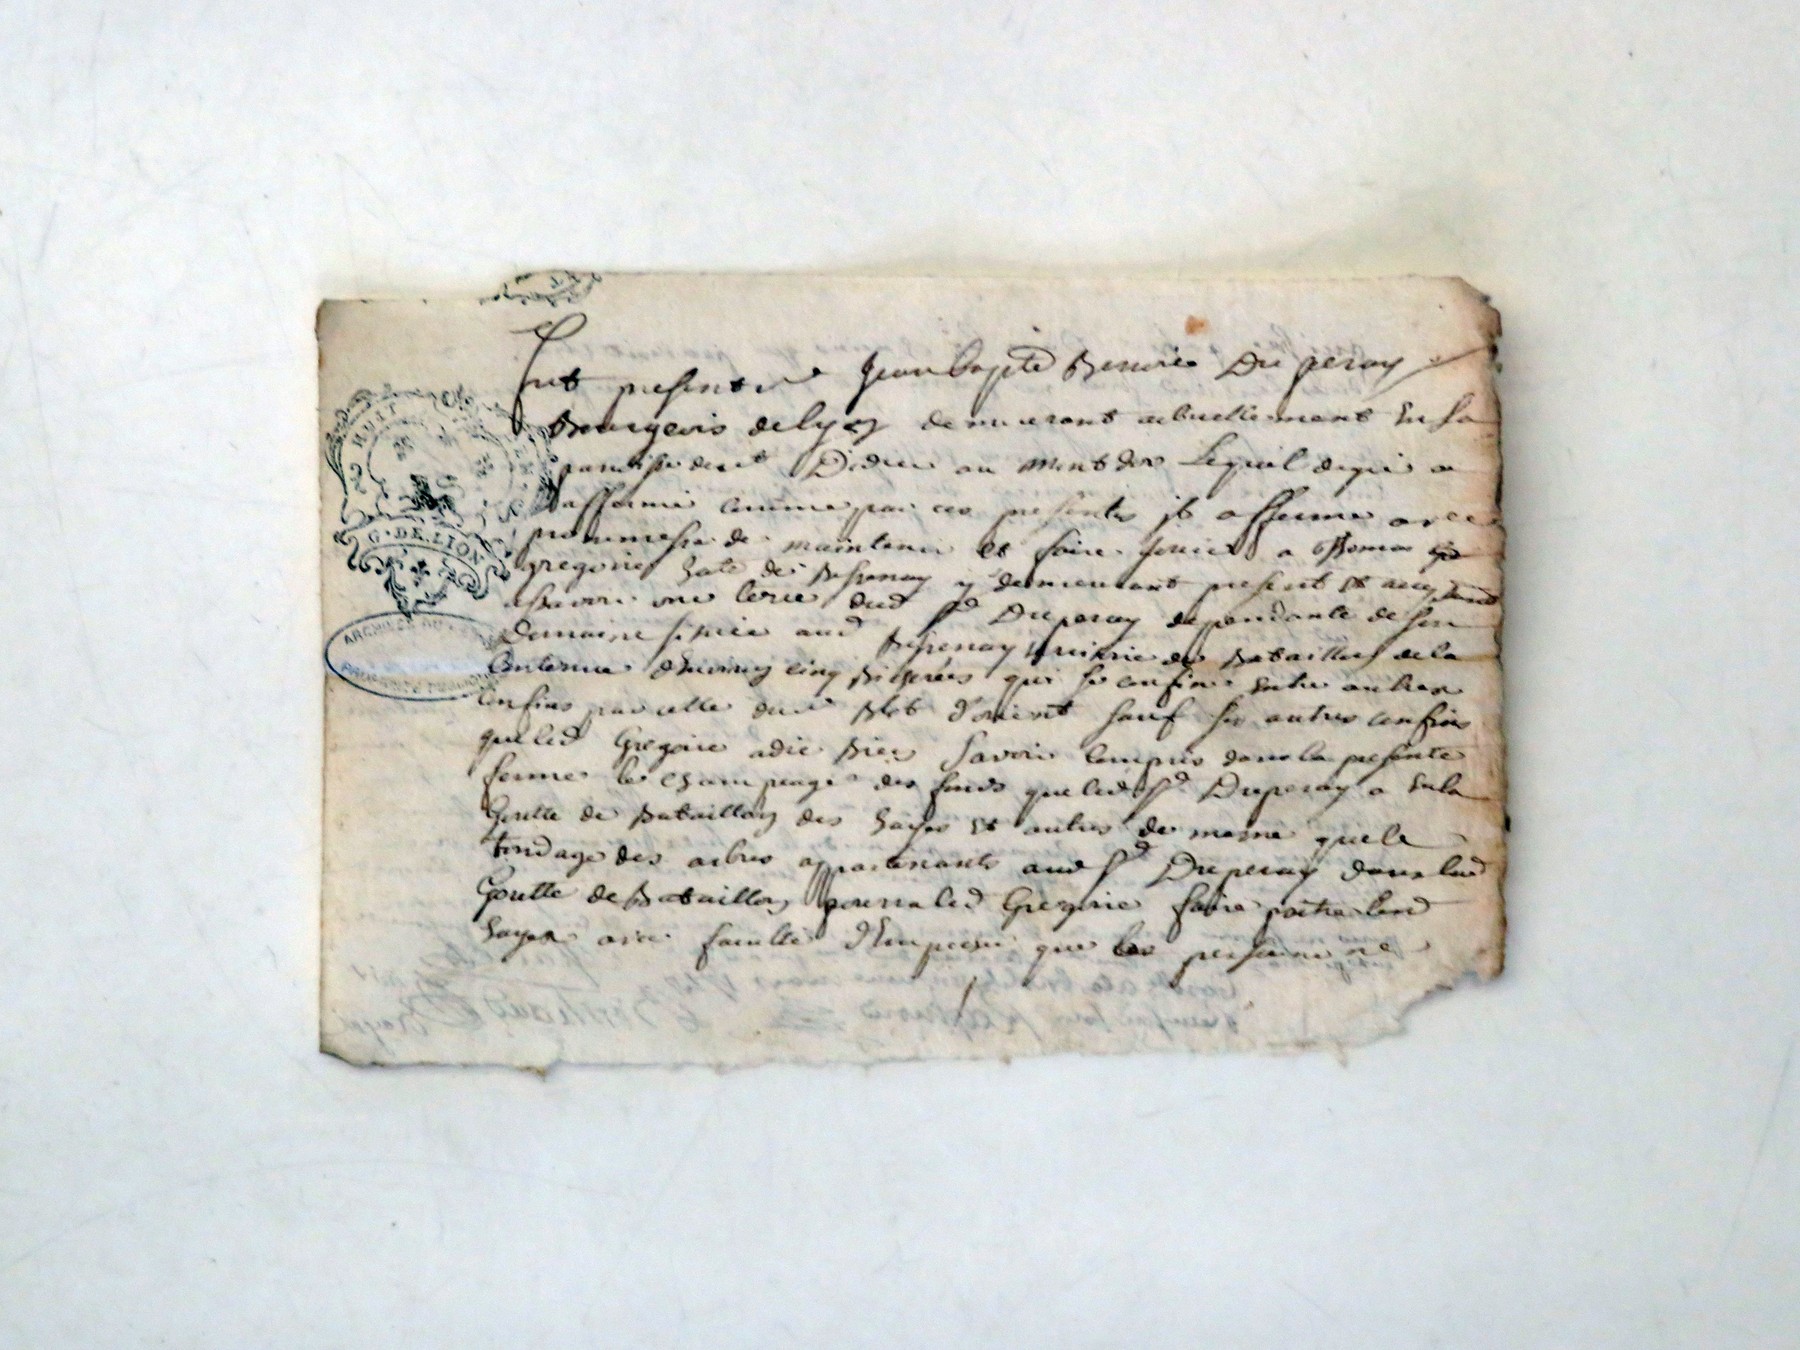 HUIT
G. DE. LION
ARCHIVES DU
fut present Jean bapte Benoist Duperay
Bourgeois de lyon demeurant actuellement en la
paroisse de st Didier au mont dor Lequel de gré a
affermé comme par ces presentes il afferme avec
promesse de maintenir et faire jouir a
gregoire de y demeurant present et acceptant
une terre dud Sr Duperay dependante de son
Domaine scitué aud de Bataillon de la
Contenue denviron cinq bicherées qui se confine entre autres
Confins par celle dud d'orient sauf ses autres confins
que led Gregoire a dit bien savoir compris dans la presente
ferme le champeage des fonds que led Sr Duperay a en la
Goutte de Bataillon des hayes et autres de mesme que le
tondage des arbres appartenants aud Sr Duperay dans lad
Goutte de Bataillon pourra led Gregoire faire paitre lesd
hayes avec faculté d'empecher que les personne ne